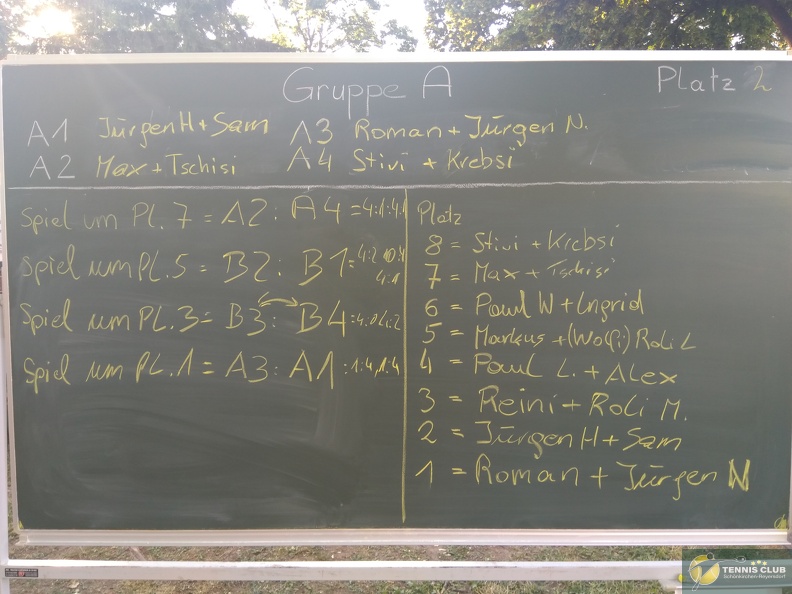 Gruppe A
Platz 2
A1 JürgenH + Sam A3 Roman + Jürgen N.
A2 Max + Tschisi A4 Stivi + Krebsi
Spiel um Pl. 7 = A2 : A4 = 4:1 4:1
Spiel um Pl. 5 = B2 : B1 = 4:2
4:1
Spiel um Pl. 3 = B3 : B4 = 4:0 4:2
Spiel um Pl. 1 = A3 : A1 : 1:4, 1:4
Platz
8 = Stivi + Krebsi
7 = Max + Tschisi
6 = Paul W + Ingrid
5 = Markus + (Wolfi) Roli L
4 = Paul L. + Alex
3 = Reini + Roli M.
2 = Jürgen H + Sam
1 = Roman + Jürgen N
TENNIS CLUB
Schönkirchen-Reyersdorf